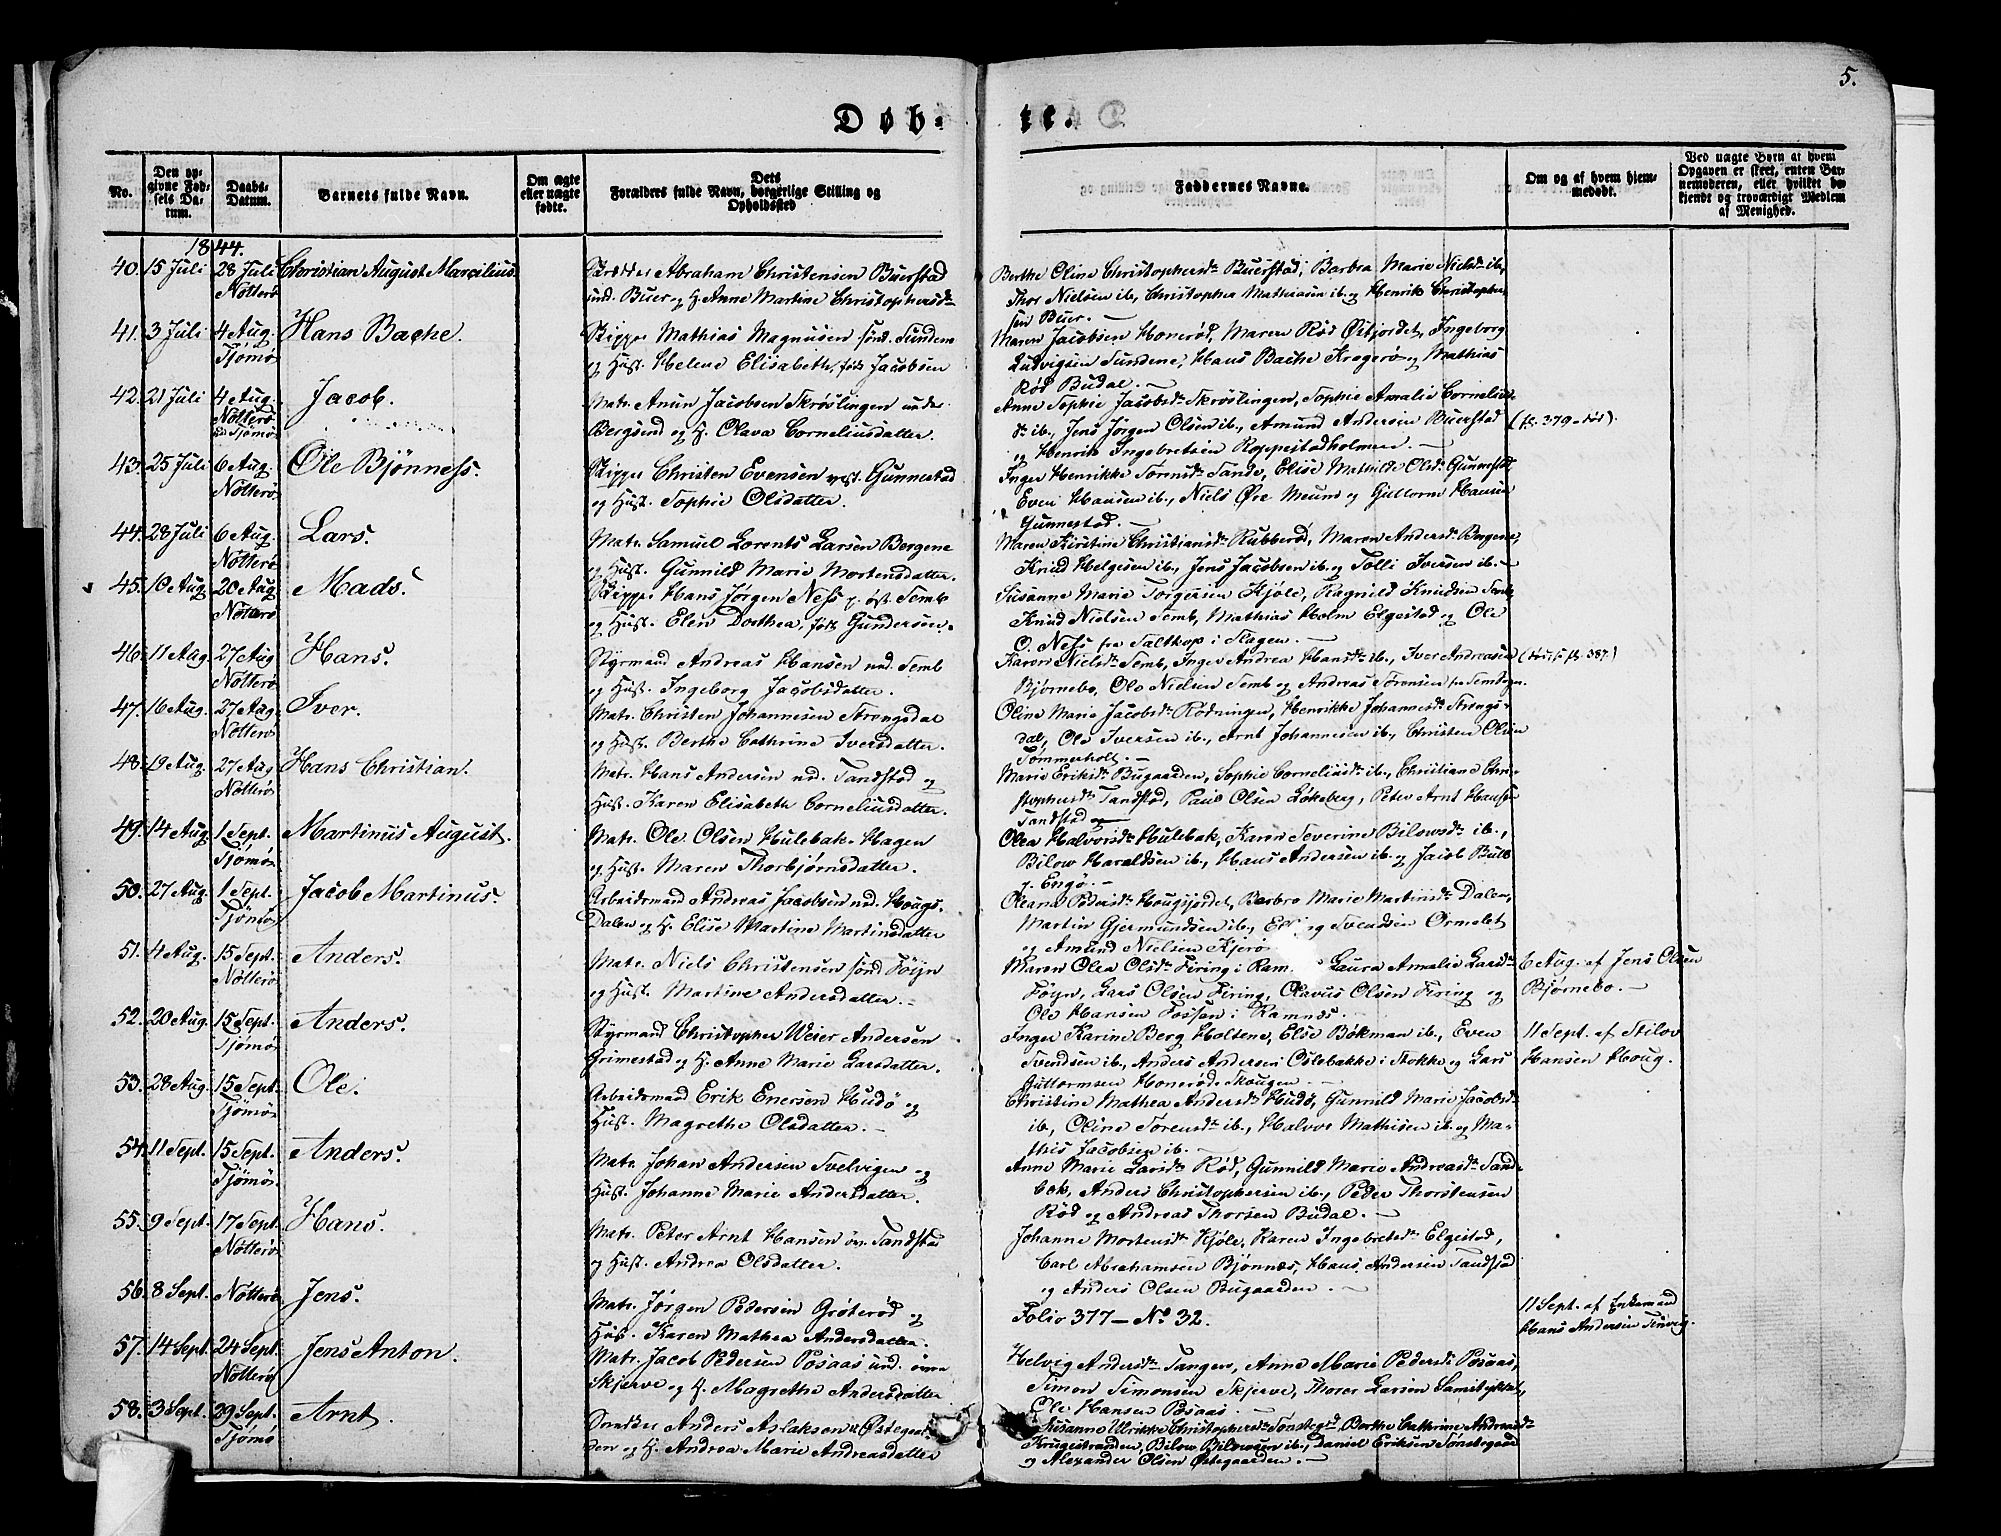 5.
Døb-
te.
No.
Den op-
givne Fød-
sels Da-
tum.
Daabs-
Datum.
Barnets fulde Navn.
Om ægte
eller uægte
fødte.
Dets
Forældres fulde Navn, borgerlige Stilling og
Opholdssted
Faddernes Navne.
Om og af hvem hjem-
medøbt.
Ved uægte Børn at hvem
Opgaven er skeet, enten Bar-
nemoderen, eller hvilket be
kjendt og troværdigt Medlem
af Menighed.
1844.
40. 15 Juli 28 Juli Christian August Marcilius
Nötterö
Abraham Christensen Buerstad
und. Buer og H. Anne Martine Christophersdr
Berthe Oline Christophersdr Buerstad, Barbra Marie Nielsdr ib,
Thor Nielsen ib, Christopher Mathiasen ib og Henrik Christopher
sen Buer. —
41. 3 Juli 4 Aug. Hans Bache.
Tjömö
Skipper Mathias Magnusen sönd. Sundene
og Hust. Helene Elisabeth, föd Jacobsen
Maren Jacobsen Honeröd, Maren Röd Östjordet, Ingeborg
Ludvigsen Sundene, Hans Bache Krageröe og Mathias
Röd Budal. —
42. 21 Juli 4 Aug. Jacob.
Nötterö
Tjömö
Matr. Anun Jacobsen Skröslingen under
Bergsend og H. Olava Corneliusdatter.
Anne Sophie Jacobsdr Skröslingen, Sophie Amalie Cornelius
dr ib, Jens Jörgen Olsen ib, Amund Andersen Buerstad
og Henrik Ingebretsen Roppestadholmen. —
43. 25 Juli 6 Aug. Ole Bjönness.
Nötterö
Skipper Christen Evensen vest. Gunnestad
og Hust. Sophie Olsdatter.
Inger Henrikke Sörensdr Sande, Elise Mathilde Olsdr Gunnestad,
Even Hansen ib, Niels Öre Meum og Guttorm Hansen
Gunnestad. —
44. 28 Juli 6 Aug. Lars.
Nötterö
Matr. Samuel Lorents Larsen Bergene
og Hust. Gunnild Marie Mortensdatter.
Maren Kirstine Christiansdr Rubberöd, Maren Andersdr Bergene,
Knud Helgesen ib, Jens Jacobsen ib og Tolli Iversen ib. —
45. 10 Aug. 20 Aug Mads.
Nötterö
Skipper Hans Jörgen Ness p. öst. Semb
og Hust. Elen Dorthea, föd Gundersen.
Susanne Marie Torgersen Kjöle, Ragnild Knudsen Semb
Knud Nielsen Semb, Mathias Holm Elgestad og Ole
O. Ness fra Saltkop i Slagen. —
46. 11 Aug. 27 Aug Hans.
Nötterö
Styrmand Andreas Hansen ned. Semb
og Hust. Ingeborg Jacobsdatter.
Karen Nielsdr Semb, Inger Andrea Hansdr ib, Iver Andreasen
Björnebo, Ole Nielsen Semb og Andreas Sörensen fra
47. 16 Aug. 27 Aug Iver.
Nötterö
Matr. Christen Johannesen Strengsdal
og Hust. Berthe Cathrine Iversdatter.
Oline Marie Jacobsdr Rödningen, Henrikke Johannesdr Strengs-
dal, Ole Iversen ib., Arnt Johannesen ib., Christen Olsen
Tömmerholt. —
48. 19 Aug 27 Aug Hans Christian.
Nötterö
Matr. Hans Andersen ned. Tandstad og
Hust. Karen Elisabeth Corneliusdatter.
Marie Eriksdr Bugaarden, Sophie Corneliusdr ib., Christiane Chri-
stophersdr Tandstad, Paul Olsen Lökeberg, Peter Arnt Hansen
Tandstad —
49. 14 Aug 1 Sept. Martinus August.
Tjömö
Matr. Ole Olsen Hulebak-Hagen
og Hust. Maren Thorbjörnsdatter.
Olea Halvorsdr Hulebak, Karen Severine Bilowsdr ib.,
Bilow Haraldsen ib., Hans Andersen ib og Jacob Bull
p. Engö. —
50. 27 Aug. 1 Sept. Jacob Martinus.
Tjömö
Arbeidsmand Andreas Jacobsen ned. Hougs-
Dalen og H. Elise Martine Martinsdatter
Oleana Pedersdr Hougsjordet, Barbro Marie Martinsdr Dalen,
Martin Gjermundsen ib., Svendsen Ormelet
og Amund Nielsen Kjerö
51. 4 Aug. 15 Sept. Anders.
Nötterö
Matr. Niels Christensen sönd Föyn
og Hust. Martine Andersdatter. —
Maren Olea Olsdr Firing i Laura Amalie Larsdr
Föyn, Lars Olsen Firing, Olavus Olsen Firing og
Ole Hansen Fossen i Ramnes. —
6 Aug. af Jens Olsen
Björnebo. —
52. 20 Aug. 15 Sept. Anders.
Tjömö
Styrmand Christopher Weier Andersen
Grimestad og H. Anne Marie Larsdatter.
Inger Karine Berg Holtene, Else Bökman ib., Even
Svendsen ib., Anders Andersen Oslebakke i Stokke og Lars
Guttormsen Honeröd-Skougen. —
11 Sept. af Stilov
Hansen Houg.
53. 28 Aug. 15 Sept. Ole.
Tjömö
Arbeidsmand Erik Enersen Hudö og
Hust. Magrethe Olsdatter. —
Christine Mathea Andersdr Hudö, Gunnild Marie Jacobsdr
ib., Oline Sörensdr ib., Halvor Mathisen ib. og Ma-
this Jacobsen ib. —
54. 11 Sept. 15 Sept. Anders.
Tjömö
Matr. Johan Andersen Svelvigen og
Hust. Johanne Marie Andersdatter.
Anne Marie Larsdr Röd, Gunnild Marie Andreasdr Sand-
bek, Anders Christophersen ib., Peder Thorstensen
Röd og Andreas Thorsen Budal. —
55. 9 Sept. 17 Sept. Hans.
Nötterö
Matr. Peter Arnt Hansen öv. Tandstad
og Hust. Andrea Olsdatter.
Johanne Mortensdr Kjöle, Karen Ingebretsdr Elgestad,
Carl Abrahamsen Björnnes, Hans Andersen Tandstad
og Anders Olsen Bugaarden. —
56. 8 Sept. Nötterö Jens.
Matr. Jörgen Pedersen Gröteröd og
Hust. Karen Mathea Andersdatter.
Folio 377 — No 32.
11 Sept. af Enkemand
Hans Andersen
57. 14 Sept. 24 Sept. Jens Anton.
Nötterö
Matr. Jacob Pedersen Posaas und. övre
Skjerve og H. Magrethe Andersdatter
Helvig Andersdr Tangen, Anne Marie Pedersdr Posaas,
Simon Simonsen Skjerve, Thorer Larsen
Ole Hansen Posaas —
58. 3 Sept. 29 Sept. Arnt.
Tjömö
Anders Aslaksen Östegaar
den og H. Andrea Marie Andreasdatter
Susanne Ulrikke Christophersdr Berthe Cathrine Andreasdr
Krugestranden, Bilow Bilowsen ib., Daniel Eriksen Sönstegaard
og Alexander Olsen Östegaarden. —